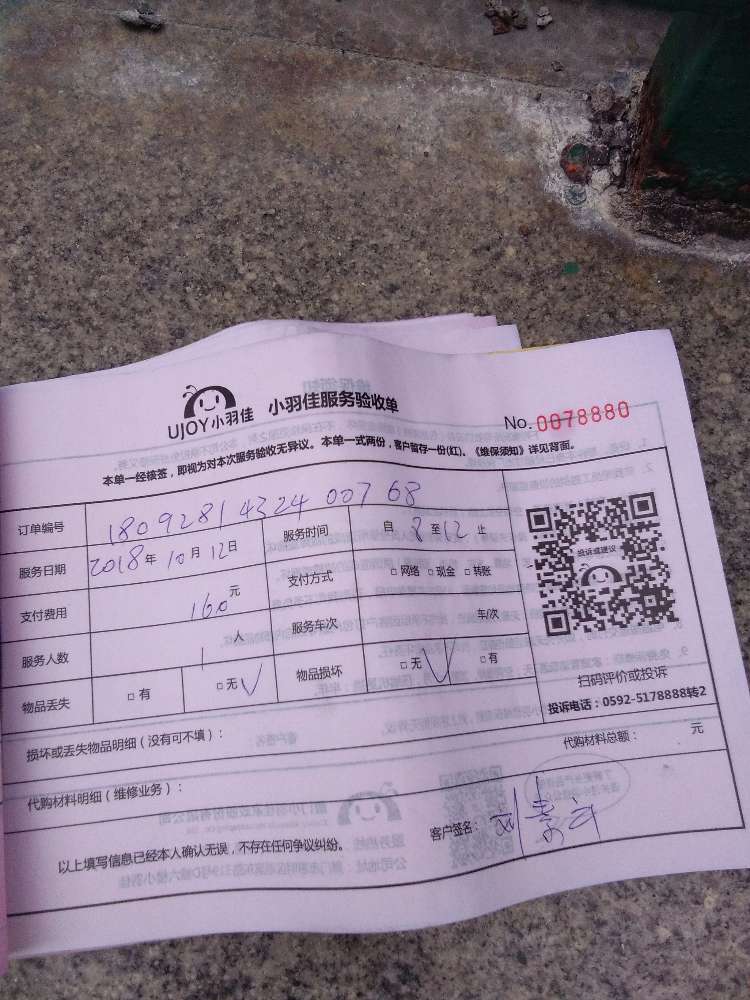 UJOY小羽佳 小羽佳服务验收单
No. 0078880
本单一经核签，即视为对本次服务验收无异议。本单一式两份，客户留存一份(红)。《维保须知》详见背面。
订单编号 180928143240076​8
服务日期 2018年10月12日 服务时间 自8至12止
支付费用 160元 支付方式 □网络 □现金 □转账
服务人数 1人 服务车次 车/次
物品丢失 □有 □无√ 物品损坏 □无√ □有
投诉或建议
扫码评价或投诉
投诉电话：0592-5178888转2
损坏或丢失物品明细（没有可不填）：
代购材料明细（维修业务）： 代购材料总额： 元
以上填写信息已经本人确认无误，不存在任何争议纠纷。 客户签名：